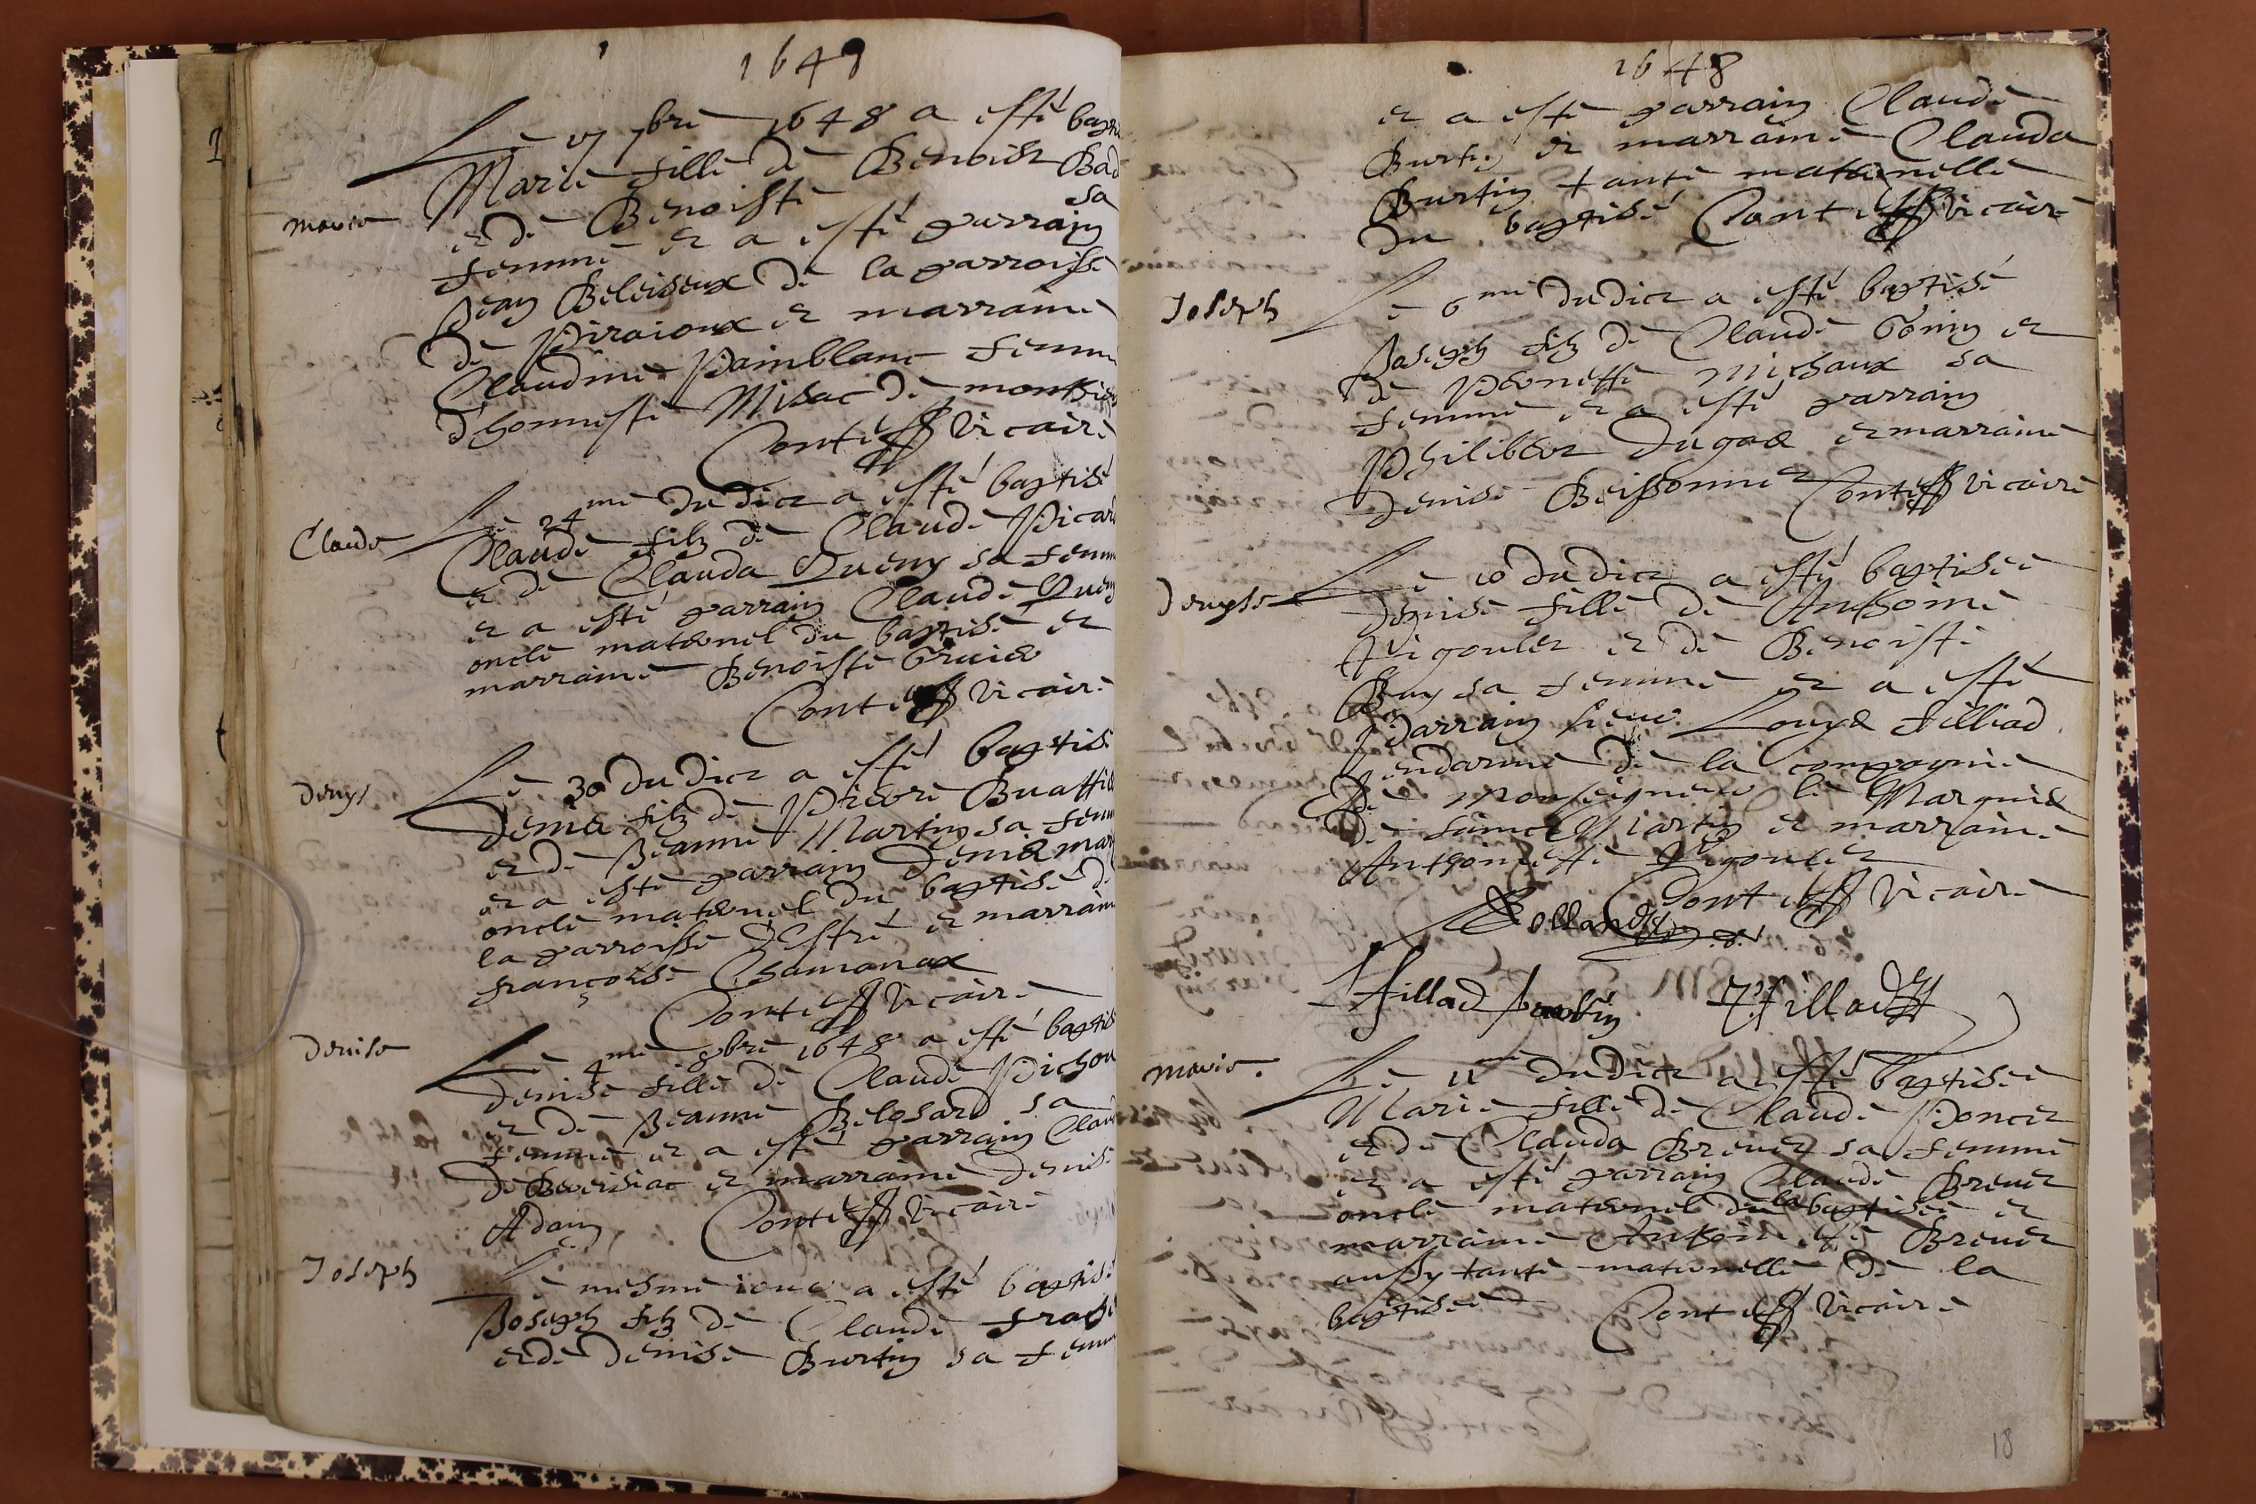 1648
Le 17 7bre 1648 a esté bapti
Marie fille de Benoist Bad
et de Benoiste sa
Marie
femme et a esté parrain
Jean Beleiseux de la parroisse
de Piraioux et marraine
Claudine Painblanc femme
d'honneste Misac de
Conte vicaire
Claude
Le 24me dudict a esté baptisé
Claude filz de Claude Picar
et de Clauda Queny sa femm
et a esté parrain Claude Queny
oncle maternel du baptisé et
marraine Benoiste
Conte vicaire
Denys
Le 30 dudict a esté baptisé
Denis filz de Pierre
et de Jeanne Martin sa fem
et a esté parrain Denis mar
oncle maternel du baptisé de
la parroisse d'Estré et marraine
françoise Chamonax
Conte vicaire
Denise
Le 4me 8bre 1648 a esté baptisé
Denise fille de Claude Pichon
et de Jeanne Belosard sa
femme et a esté parrain Claud
de et marraine Denise
Adam Conte vicaire
Joseph
Le mesme iour a esté baptisé
Joseph filz de Claude
et de Denise Burtin sa femm
1648
et a esté parrain Claude
Burtin et marraine Clauda
Burtin tante maternelle
du baptisé Conte vicaire
Joseph
Le 6me dudict a esté baptisé
Joseph filz de Claude Gonin et
de Pernette Michaux sa
femme et a esté parrain
Philibert Dugas et marraine
Denise Beissonnier Conte vicaire
Denyse
Le 10 dudict a esté baptisée
Denise fille de Anthoine
Vigoulet et de Benoiste
Buy sa femme et a esté
Parrain sieur Louys filliad
gendarme de la compagnie
de monseigneur le Marquis
de sainct Martin et marraine
Anthoinette Vigoulet
Conte vicaire
Hollande
filliad
filliad
Marie
Le 11me dudict a esté baptisée
Marie fille de Claude Poncet
et de Clauda Brevet sa femme
et a esté parrain Claude Brevet
oncle maternel de la baptisée et
marraine Anthoinette Brevet
aussy tante maternelle de la
baptisée Conte vicaire
18